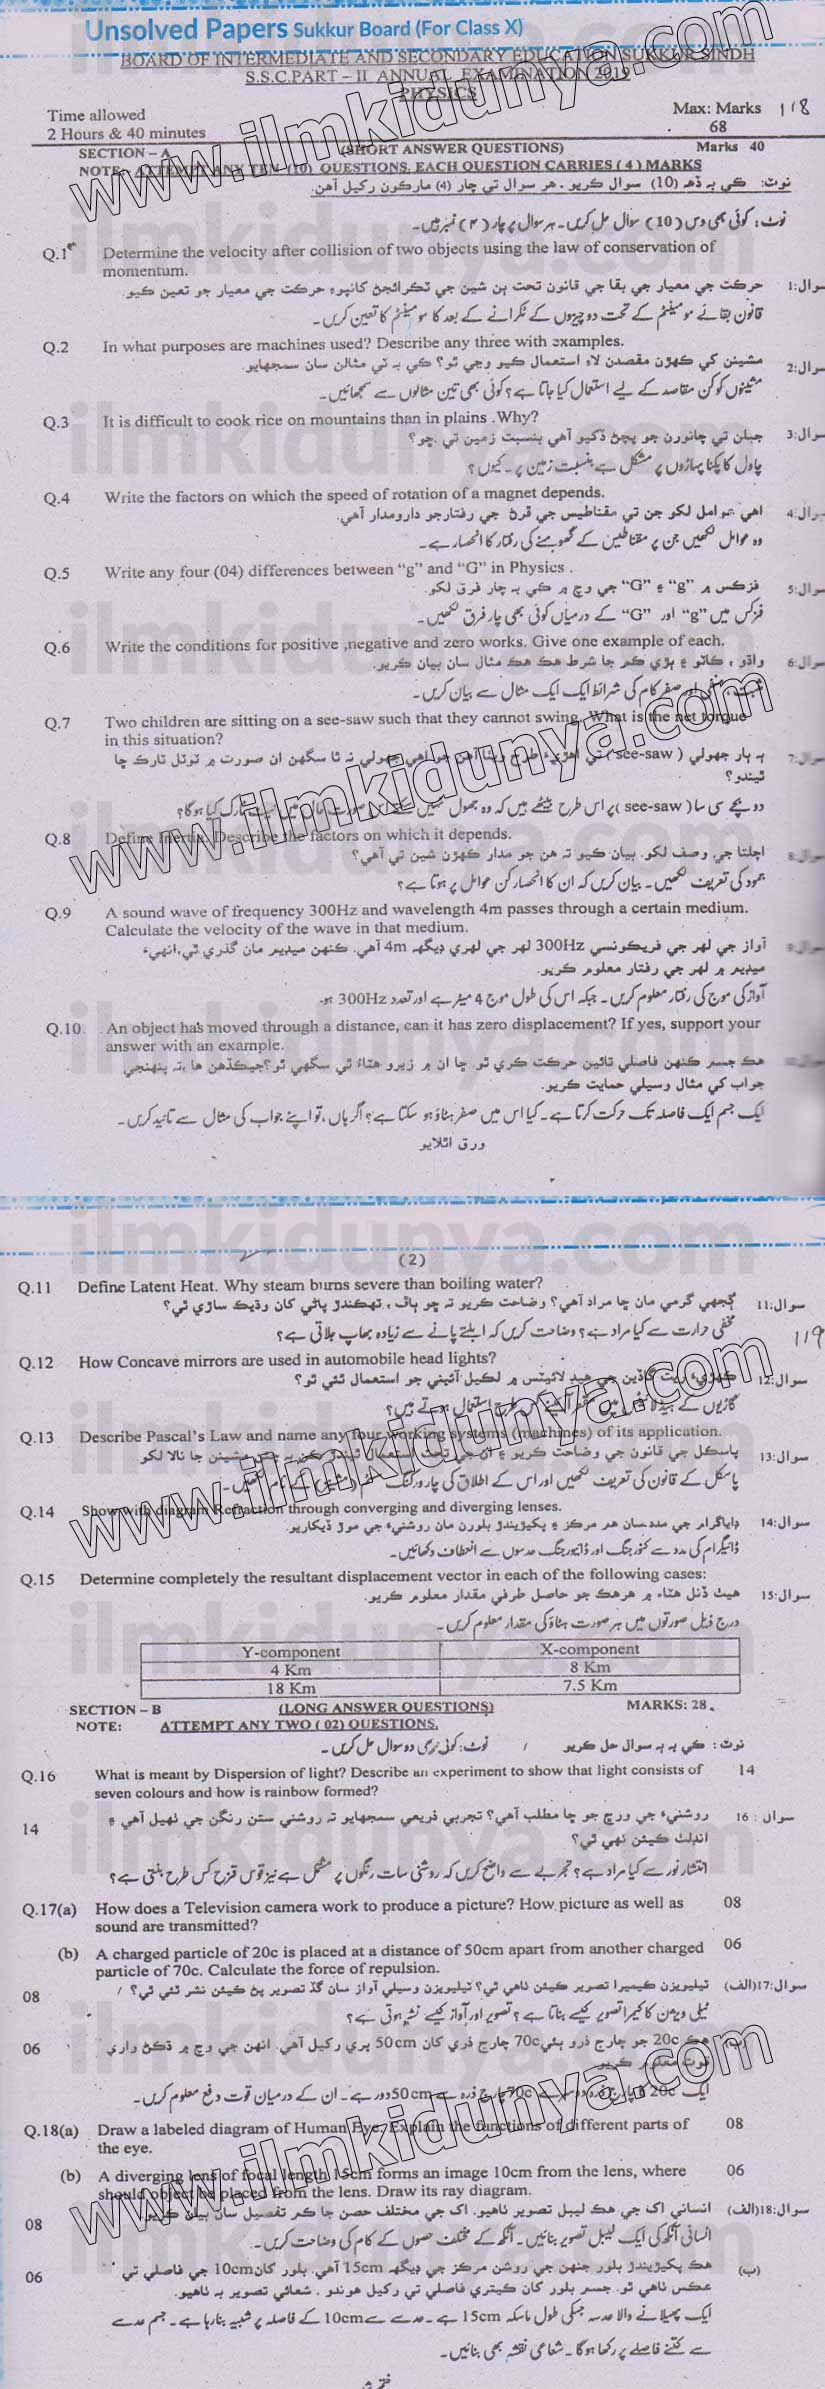 Unsolved Papers Sukkur Board (For Class X)
BOARD OF INTERMEDIATE AND SECONDARY EDUCATION SUKKUR SINDH
S.S.C.PART – II ANNUAL EXAMINATION 2019
PHYSICS
Time allowed Max: Marks 118
2 Hours & 40 minutes 68
SECTION – A (SHORT ANSWER QUESTIONS) Marks 40
NOTE:- ATTEMPT ANY TEN (10) QUESTIONS. EACH QUESTION CARRIES ( 4 ) MARKS
نوٽ: ڪي به ڏهه (10) سوال ڪريو. هر سوال تي چار (4) مارڪون رکيل آهن.
نوٹ: کوئی بھی دس (10) سوال حل کریں۔ ہر سوال پر چار (۴) نمبر ہیں۔
Q.1 Determine the velocity after collision of two objects using the law of conservation of
momentum.
سوال:1 حرڪت جي معيار جي بقا جي قانون تحت ٻن شين جي ٽڪرائجڻ کانپوءِ حرڪت جي معيار جو تعين ڪيو.
قانون بقائے مومینٹم کے تحت دو چیزوں کے ٹکرانے کے بعد کا مومینٹم کا تعین کریں۔
Q.2 In what purposes are machines used? Describe any three with examples.
سوال:2 مشينن کي ڪهڙن مقصدن لاءِ استعمال ڪيو وڃي ٿو؟ ڪي به ٽي مثالن سان سمجهايو.
مشینوں کو کن مقاصد کے لیے استعمال کیا جاتا ہے؟ کوئی بھی تین مثالوں سے سمجھائیں۔
Q.3 It is difficult to cook rice on mountains than in plains .Why?
سوال:3 جبلن تي چانورن جو پچڻ ڏکيو آهي بنسبت زمين تي .ڇو؟
چاول کا پکنا پہاڑوں پر مشکل ہے بنسبت زمین پر۔ کیوں؟
Q.4 Write the factors on which the speed of rotation of a magnet depends.
سوال:4 اهي عوامل لکو جن تي مقناطيس جي ڦرڻ جي رفتار جو دارومدار آهي.
وہ عوامل لکھیں جن پر مقناطیس کے گھومنے کی رفتار کا انحصار ہے۔
Q.5 Write any four (04) differences between “g” and “G” in Physics .
سوال:5 فزڪس ۾ “g” ۽ “G” جي وچ ۾ ڪي به چار فرق لکو.
فزکس میں “g” اور “G” کے درمیاں کوئی بھی چار فرق لکھیں۔
Q.6 Write the conditions for positive ,negative and zero works. Give one example of each.
سوال:6 واڌو ، ڪاٽو ۽ ٻڙي ڪم جا شرط هڪ هڪ مثال سان بيان ڪريو.
مثبت ، منفی اور صفر کام کی شرائط ایک ایک مثال سے بیان کریں۔
Q.7 Two children are sitting on a see-saw such that they cannot swing. What is the net torque
in this situation?
سوال:7 ٻه ٻار جهولي (see-saw) تي اهڙيءَ طرح ويٺا آهن جو اهي جهولي نه ٿا سگهن ان صورت ۾ ٽوٽل ٽارڪ ڇا
ٿيندو؟
دو بچے سی سا (see-saw) پر اس طرح بیٹھے ہیں کہ وہ جھول نہیں سکتے اس صورت حال میں نیٹ ٹارک کیا ہوگا؟
Q.8 Define Inertia. Describe the factors on which it depends.
سوال:8 اچلتا جي وصف لکو. بيان ڪيو ته هن جو مدار ڪهڙن شين تي آهي؟
جمود کی تعریف لکھیں۔ بیان کریں کہ ان کا انحصار کن عوامل پر ہوتا ہے؟
Q.9 A sound wave of frequency 300Hz and wavelength 4m passes through a certain medium.
Calculate the velocity of the wave in that medium.
سوال:9 آواز جي لهر جي فريڪوئنسي 300Hz لهر جي لهري ڊيگهه 4m آهي. ڪنهن ميڊيم مان گذري ٿي,انهيءَ
ميڊيم ۾ لهر جي رفتار معلوم ڪريو.
آواز کی موج کی رفتار معلوم کریں۔ جبکہ اس کی طول موج 4 میٹر ہے اور تعدد 300Hz ہو۔
Q.10 An object has moved through a distance, can it has zero displacement? If yes, support your
answer with an example.
هڪ جسم ڪنهن فاصلي تائين حرڪت ڪري ٿو. ڇا ان ۾ زيرو هٽاءُ ٿي سگهي ٿو؟جيڪڏهن ها ،ته پنهنجي
جواب کي مثال وسيلي حمايت ڪريو.
ایک جسم ایک فاصلہ تک حرکت کرتا ہے۔ کیا اس میں صفر ہٹاؤ ہو سکتا ہے؟ اگر ہاں، تو اپنے جواب کی مثال سے تائید کریں۔
ورق اٿلايو
(2)
Q.11 Define Latent Heat. Why steam burns severe than boiling water?
سوال:11 ڳجهي گرمي مان ڇا مراد آهي؟ وضاحت ڪريو ته ڇو ٻاڦ ، ٽهڪندڙ پاڻي کان وڌيڪ ساڙي ٿي؟
مخفی حرارت سے کیا مراد ہے؟ وضاحت کریں کہ ابلتے پانے سے زیادہ بھاپ جلاتی ہے؟
119
Q.12 How Concave mirrors are used in automobile head lights?
سوال:12 ڪهڙيءَ ريت گاڏين جي هيڊ لائيٽس ۾ لڪيل آئيني جو استعمال ٿئي ٿو؟
گاڑیوں کے ہیڈ لائٹس میں مقعر آئینے کس طرح استعمال ہوتے ہیں؟
Q.13 Describe Pascal’s Law and name any four working systems (machines) of its application.
سوال:13 پاسڪل جي قانون جي وضاحت ڪريو ۽ ان جي تحت استعمال ٿيندڙ ڪن به چئن مشينن جا نالا لکو
پاسکل کے قانون کی تعریف لکھیں اور اس کے اطلاق کی چار ورکنگ سسٹم (مشینوں) کے نام لکھیں۔
Q.14 Show with diagram Refraction through converging and diverging lenses.
سوال:14 ڊاياگرام جي مدد سان هم مرڪز ۽ پکيڙيندڙ بلورن مان روشنيءَ جي موڙ ڏيکاريو.
ڈائیگرام کی مدد سے کنورجنگ اور ڈائیورجنگ عدسوں سے انعطاف دکھائیں۔
Q.15 Determine completely the resultant displacement vector in each of the following cases:
سوال:15 هيٺ ڏنل هٽاءَ ۾ هرهڪ جو حاصل طرفي مقدار معلوم ڪريو.
درج ذیل صورتوں میں ہر صورت ہٹاؤ کی مقدار معلوم کریں۔
Y-component X-component
4 Km 8 Km
18 Km 7.5 Km
SECTION – B (LONG ANSWER QUESTIONS) MARKS: 28
NOTE: ATTEMPT ANY TWO ( 02) QUESTIONS.
نوٽ: ڪي به ٻه سوال حل ڪريو / نوٹ: کوئی بھی دو سوال حل کریں۔
Q.16 What is meant by Dispersion of light? Describe an experiment to show that light consists of 14
seven colours and how is rainbow formed?
سوال : 16 روشنيءَ جي ورڇ جو ڇا مطلب آهي؟ تجربي ذريعي سمجهايو ته روشني ستن رنگن جي ٺهيل آهي ۽ 14
انڊلٺ ڪيئن ٺهي ٿي؟
انتشار نور سے کیا مراد ہے؟ تجربے سے واضح کریں کہ روشنی سات رنگوں پر مشتمل ہے نیز قوس قزح کس طرح بنتی ہے؟
Q.17(a) How does a Television camera work to produce a picture? How picture as well as 08
sound are transmitted?
(b) A charged particle of 20c is placed at a distance of 50cm apart from another charged 06
particle of 70c. Calculate the force of repulsion.
سوال:17(الف) ٽيليويزن ڪيميرا تصوير ڪيئن ٺاهي ٿي؟ ٽيليويزن وسيلي آواز سان گڏ تصوير پڻ ڪيئن نشر ٿئي ٿي؟ / 08
ٹیلی ویژن کا کیمرا تصویر کیسے بناتا ہے؟ تصویر اور آواز کیسے نشر ہوتی ہے؟
(ب) هڪ 20c جو چارج ذرو ٻئي70c چارج ذري کان 50cm پري رکيل آهي. انهن جي وچ ۾ ڌڪڻ واري 06
قوت معلوم ڪريو.
ایک 20c کا چارج ذرہ دوسرے 70c چارج ذرہ سے 50cm دور ہے۔ ان کے درمیان قوت دفع معلوم کریں۔
Q.18(a) Draw a labeled diagram of Human Eye. Explain the functions of different parts of 08
the eye.
(b) A diverging lens of focal length 15cm forms an image 10cm from the lens, where 06
should object be placed from the lens. Draw its ray diagram.
سوال:18(الف) انساني اک جي هڪ ليبل تصوير ٺاهيو. اک جي مختلف حصن جا ڪم تفصيل سان بيان ڪريو. 08
انسانی آنکھ کی ایک لیبل تصویر بنائیں۔ آنکھ کے مختلف حصوں کے کام کی وضاحت کریں۔
(ب) هڪ پکيڙيندڙ بلور جنهن جي روشن مرڪز جي ڊيگهه 15cm آهي. بلور کان10cm جي فاصلي تي 06
عڪس ٺاهي ٿو. جسم بلور کان ڪيتري فاصلي تي رکيل هوندو . شعائي تصوير به ٺاهيو.
ایک پھیلانے والا عدسہ جسکی طول ماسکہ 15cm ہے۔ عدسے سے10cm کے فاصلہ پر شبیہ بنا رہا ہے۔ جسم عدسے
سے کتنے فاصلے پر رکھا ہوگا۔ شعاعی نقشہ بھی بنائیں۔
www.ilmkidunya.com
ilmkidunya.com